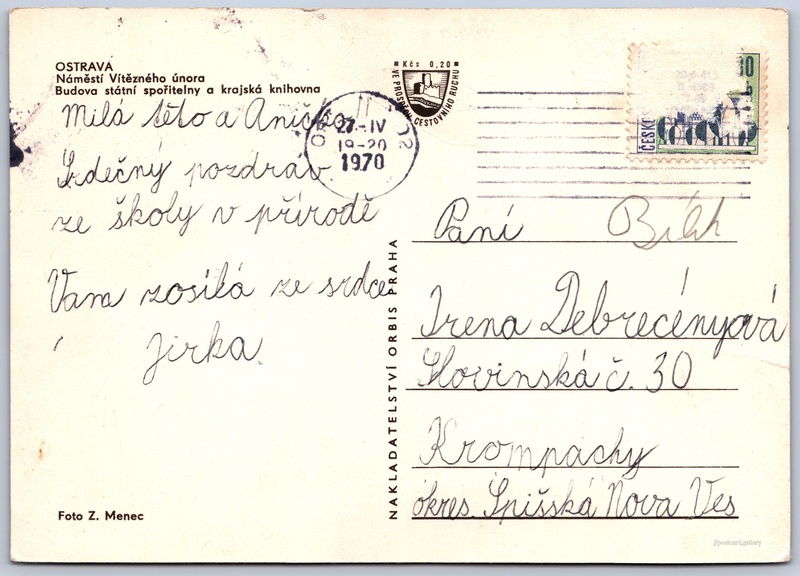 OSTRAVA
Náměstí Vítězného února
Budova státní spořitelny a krajská knihovna
Kčs 0,20
VE PROSPĚCH CESTOVNÍHO RUCHU
27.-IV
19-20
1970
ČESKO
Milá těto a Aničko
Srdečný pozdrav
ze školy v přírodě
Vam zosílá ze srdce
Jirka
Paní
Irena Debrecényová
Slovinská č. 30
Krompachy
okres. Spišská Nova Ves
NAKLADATELSTVÍ ORBIS PRAHA
Foto Z. Menec